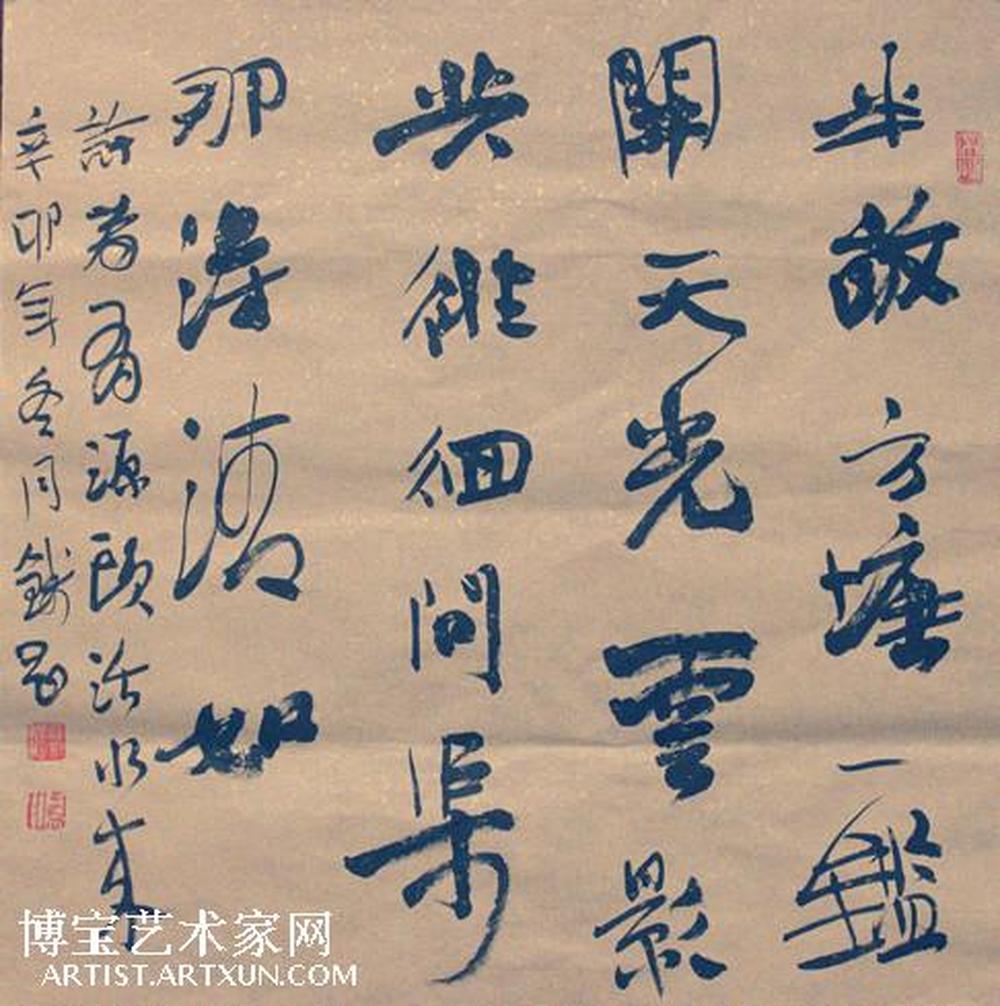 半畝方塘一鑑
開天光雲影
共徘徊問渠
那得清如
許為有源頭活水来
辛卯年冬月
博宝艺术家网
ARTIST.ARTXUN.COM